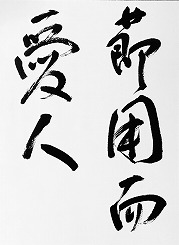 節用而
愛人